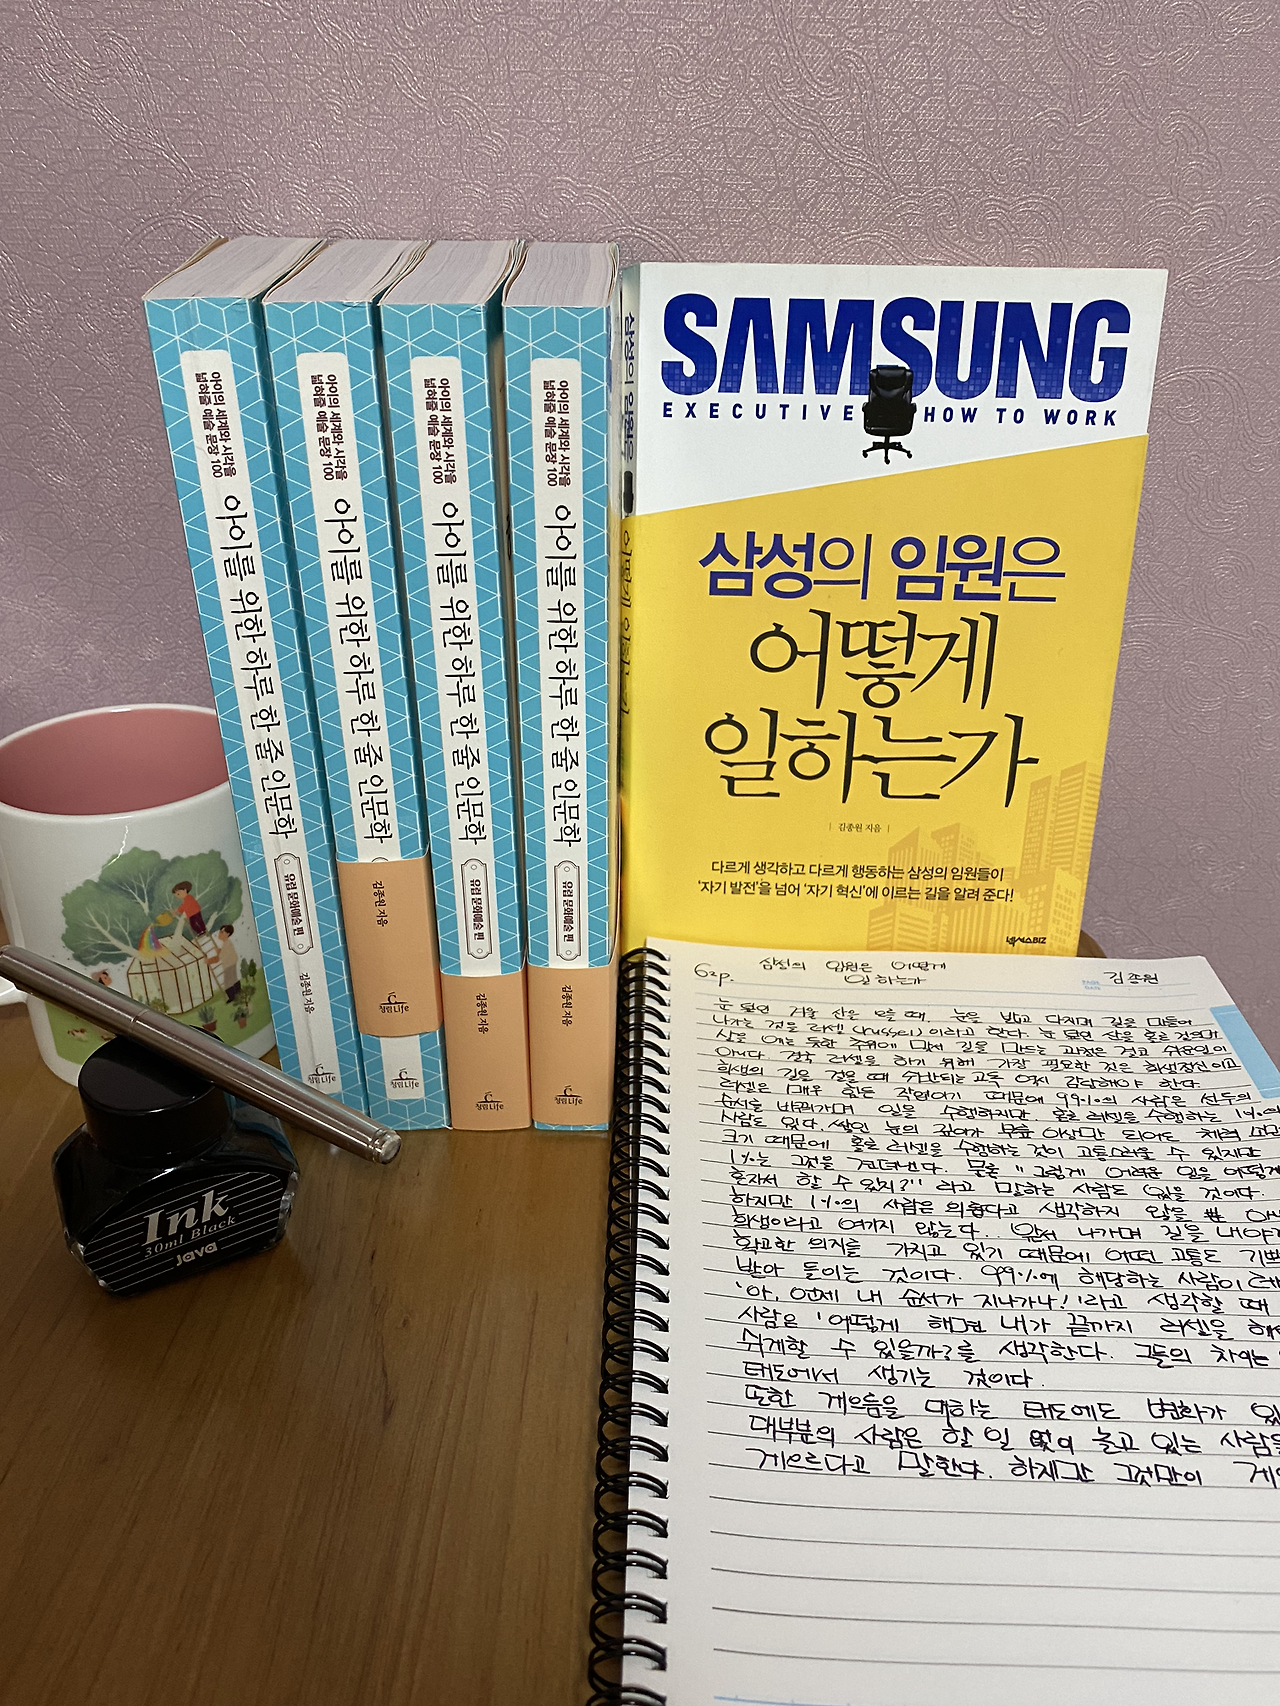 아이의 세계와 시각을
넓혀줄 예술 문장 100
아이를 위한 하루 한 줄 인문학
유럽 문화예술 편
김종원 지음
청림Life
아이의 세계와 시각을
넓혀줄 예술 문장 100
아이를 위한 하루 한 줄 인문학
김종원 지음
청림Life
청림Life
아이의 세계와 시각을
넓혀줄 예술 문장 100
아이를 위한 하루 한 줄 인문학
유럽 문화예술 편
김종원 지음
청림Life
아이의 세계와 시각을
넓혀줄 예술 문장 100
아이를 위한 하루 한 줄 인문학
유럽 문화예술 편
김종원 지음
청림Life
삼성의 임원은 어떻게 일하는가
SAMSUNG
EXECUTIVE HOW TO WORK
삼성의 임원은
어떻게
일하는가
김종원 지음
다르게 생각하고 다르게 행동하는 삼성의 임원들이
'자기 발전'을 넘어 '자기 혁신'에 이르는 길을 알려 준다!
넥서스BIZ
Ink
30ml Black
Java
62p. 삼성의 임원은 어떻게
일하는가
김종원
눈 덮인 겨울 산을 오를 때, 눈을 밟고 다지며 길을 만들어
나가는 것을 러셀(russel)이라고 한다. 눈 덮인 산을 홀로
삶을 에는 듯한 추위에 맞서 길을 만드는 과정은 결코 쉬운일이
아니다. 결국 러셀을 하기 위해 가장 필요한 것은 희생정신이고
희생의 길을 걸을 때 수반되는 고독 역시 감당해야 한다.
러셀은 매우 힘든 작업이기 때문에 99%의 사람은 선두의
순서를 바꿔가며 일을 수행하지만 홀로 러셀을 수행하는 1%의
사람도 있다. 쌓인 눈의 깊이가 무릎 이상만 되어도 체력 소모
크기 때문에 홀로 러셀을 수행하는 것이 고통스러울 수 있지만
1%는 그것을 견뎌낸다. 물론 "그렇게 어려운 일을 어떻게
혼자서 할 수 있지?" 라고 말하는 사람도 있을 것이다.
하지만 1%의 사람은 외롭다고 생각하지 않을
희생이라고 여기지 않는다.. 앞서 나가며 길을 내야
확고한 의지를 가지고 있기 때문에 어떤 고통도
받아 들이는 것이다. 99%에 해당하는 사람이
'아, 언제 내 순서가 지나가나!'라고 생각할 때
사람은 '어떻게 하면 내가 끝까지 러셀을
쉬게할 수 있을까?'를 생각한다. 그들의 차이는
태도에서 생기는 것이다.
또한 게으름을 대하는 태도에도 변화가
대부분의 사람은 할 일 없이 놀고 있는 사람을
게으르다고 말한다. 하지만 그것만이